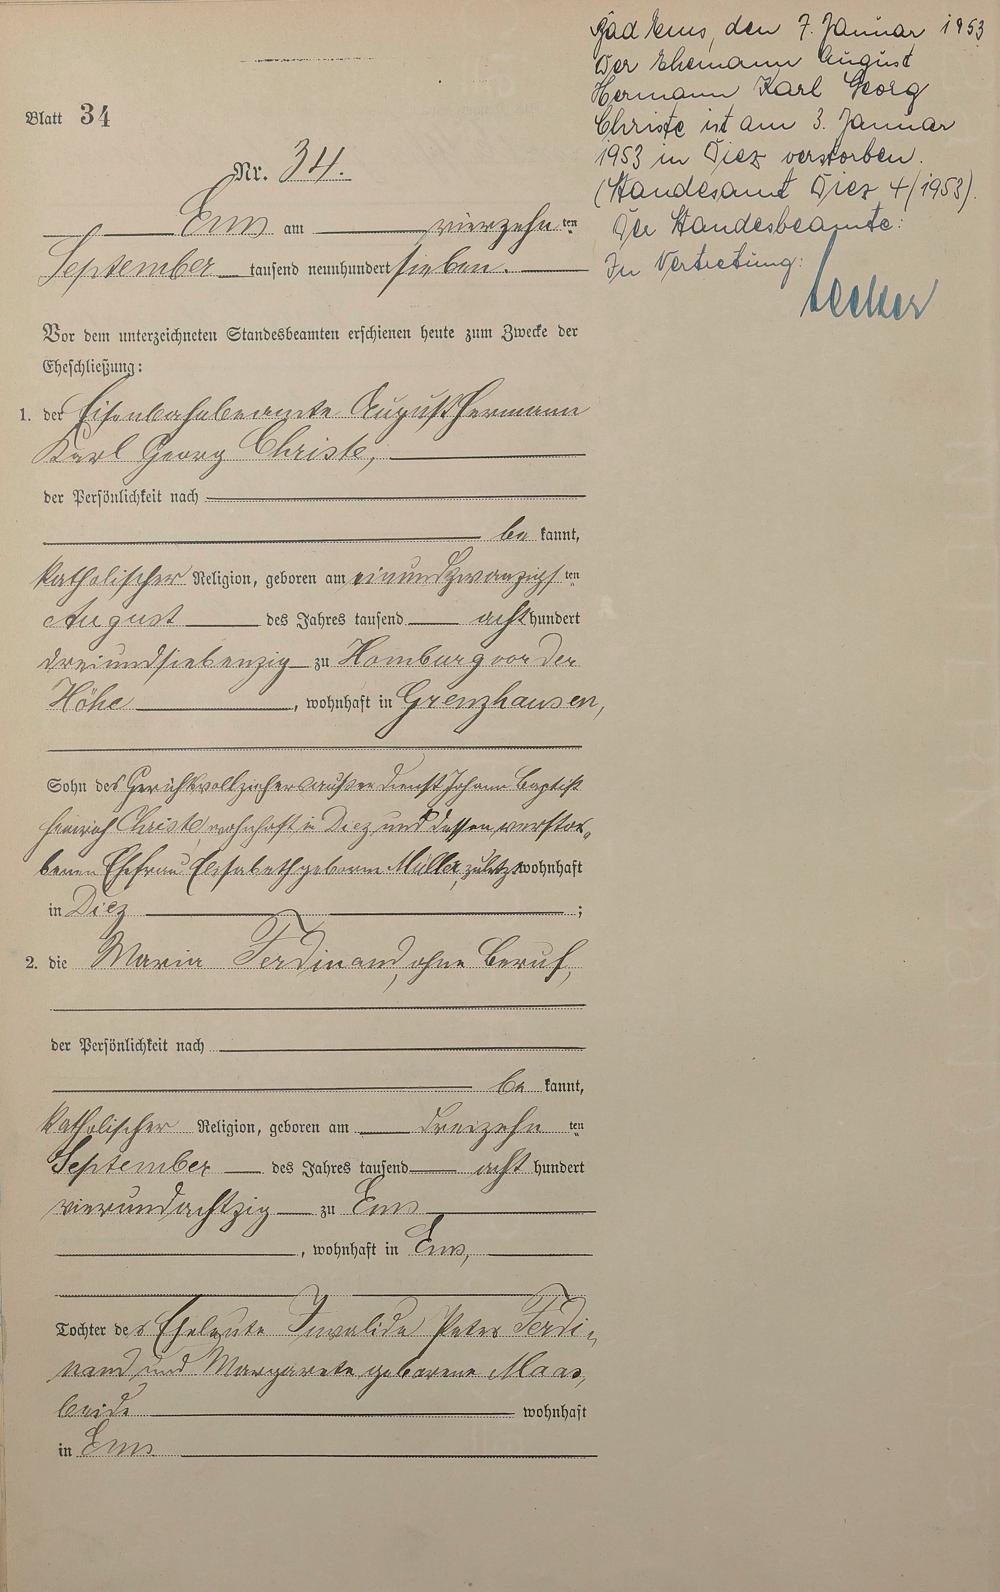 Blatt 34
Nr. 34.
Ems am vierzehnten
September tausend neunhundert sieben.
Vor dem unterzeichneten Standesbeamten erschienen heute zum Zwecke der
Eheschließung:
1. der Eisenbahnbeamte August Hermann
Karl Georg Christe,
der Persönlichkeit nach
be kannt,
katholischer Religion, geboren am einundzwanzigsten
August des Jahres tausend acht hundert
dreiundsiebenzig zu Homburg vor der
Höhe, wohnhaft in Grenzhausen,
Sohn des Gerichtsvollzieher außer Dienst Johann Baptist
Heinrich Christe, wohnhaft in Diez und dessen verstor-
benen Ehefrau Elisabeth geborene Müller, zuletzt wohnhaft
in Diez ;
2. die Maria Ferdinand, ohne Beruf,
der Persönlichkeit nach
be kannt,
katholischer Religion, geboren am dreizehnten
September des Jahres tausend acht hundert
vierundachtzig zu Ems
, wohnhaft in Ems,
Tochter der Eheleute Invalide Peter Ferdi-
nand und Margarete geborene Maas,
beide wohnhaft
in Ems
Bad Ems, den 7. Januar 1953
Der Ehemann August
Hermann Karl Georg
Christe ist am 3. Januar
1953 in Diez verstorben.
(Standesamt Diez 4/1953).
Der Standesbeamte:
In Vertretung: